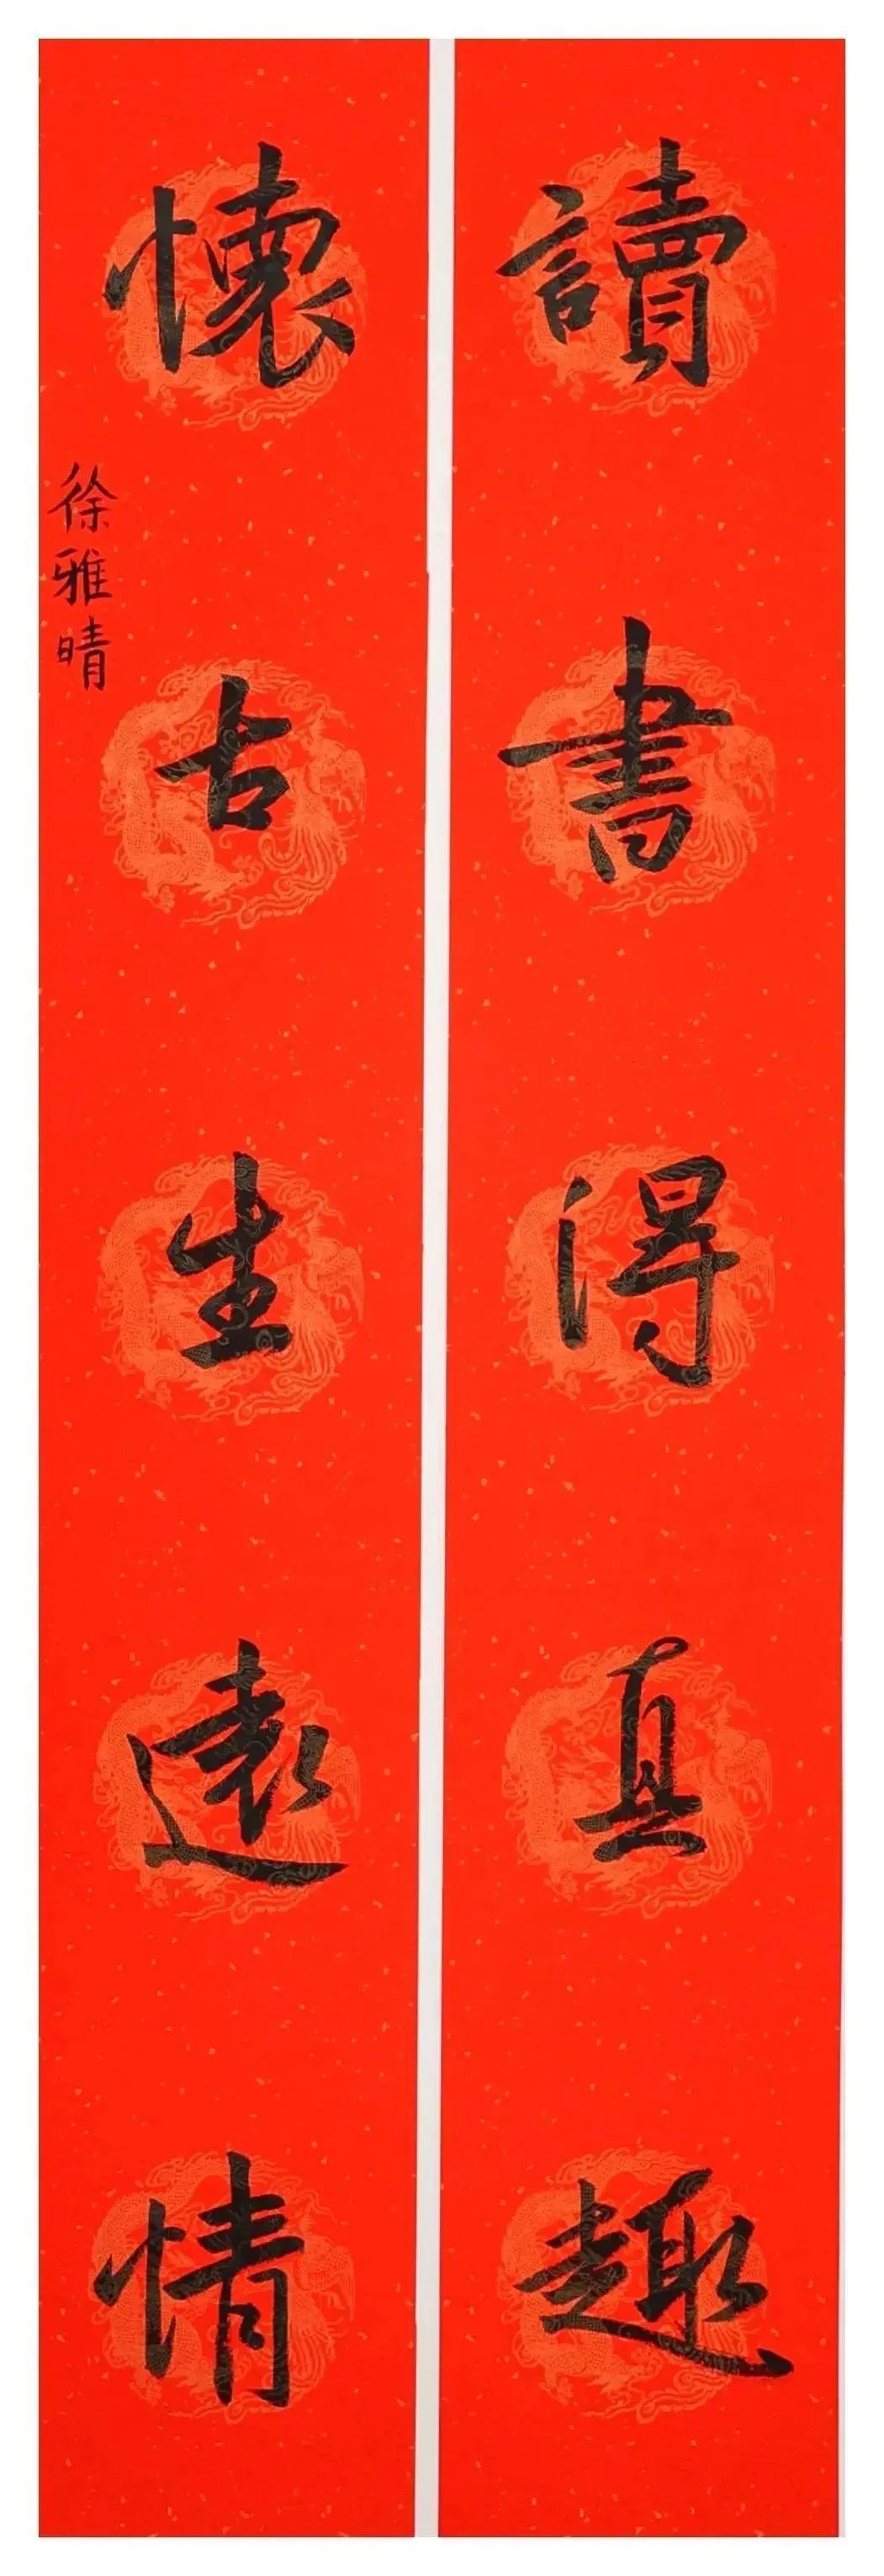 讀書得真趣
懷古生遠情
徐雅晴